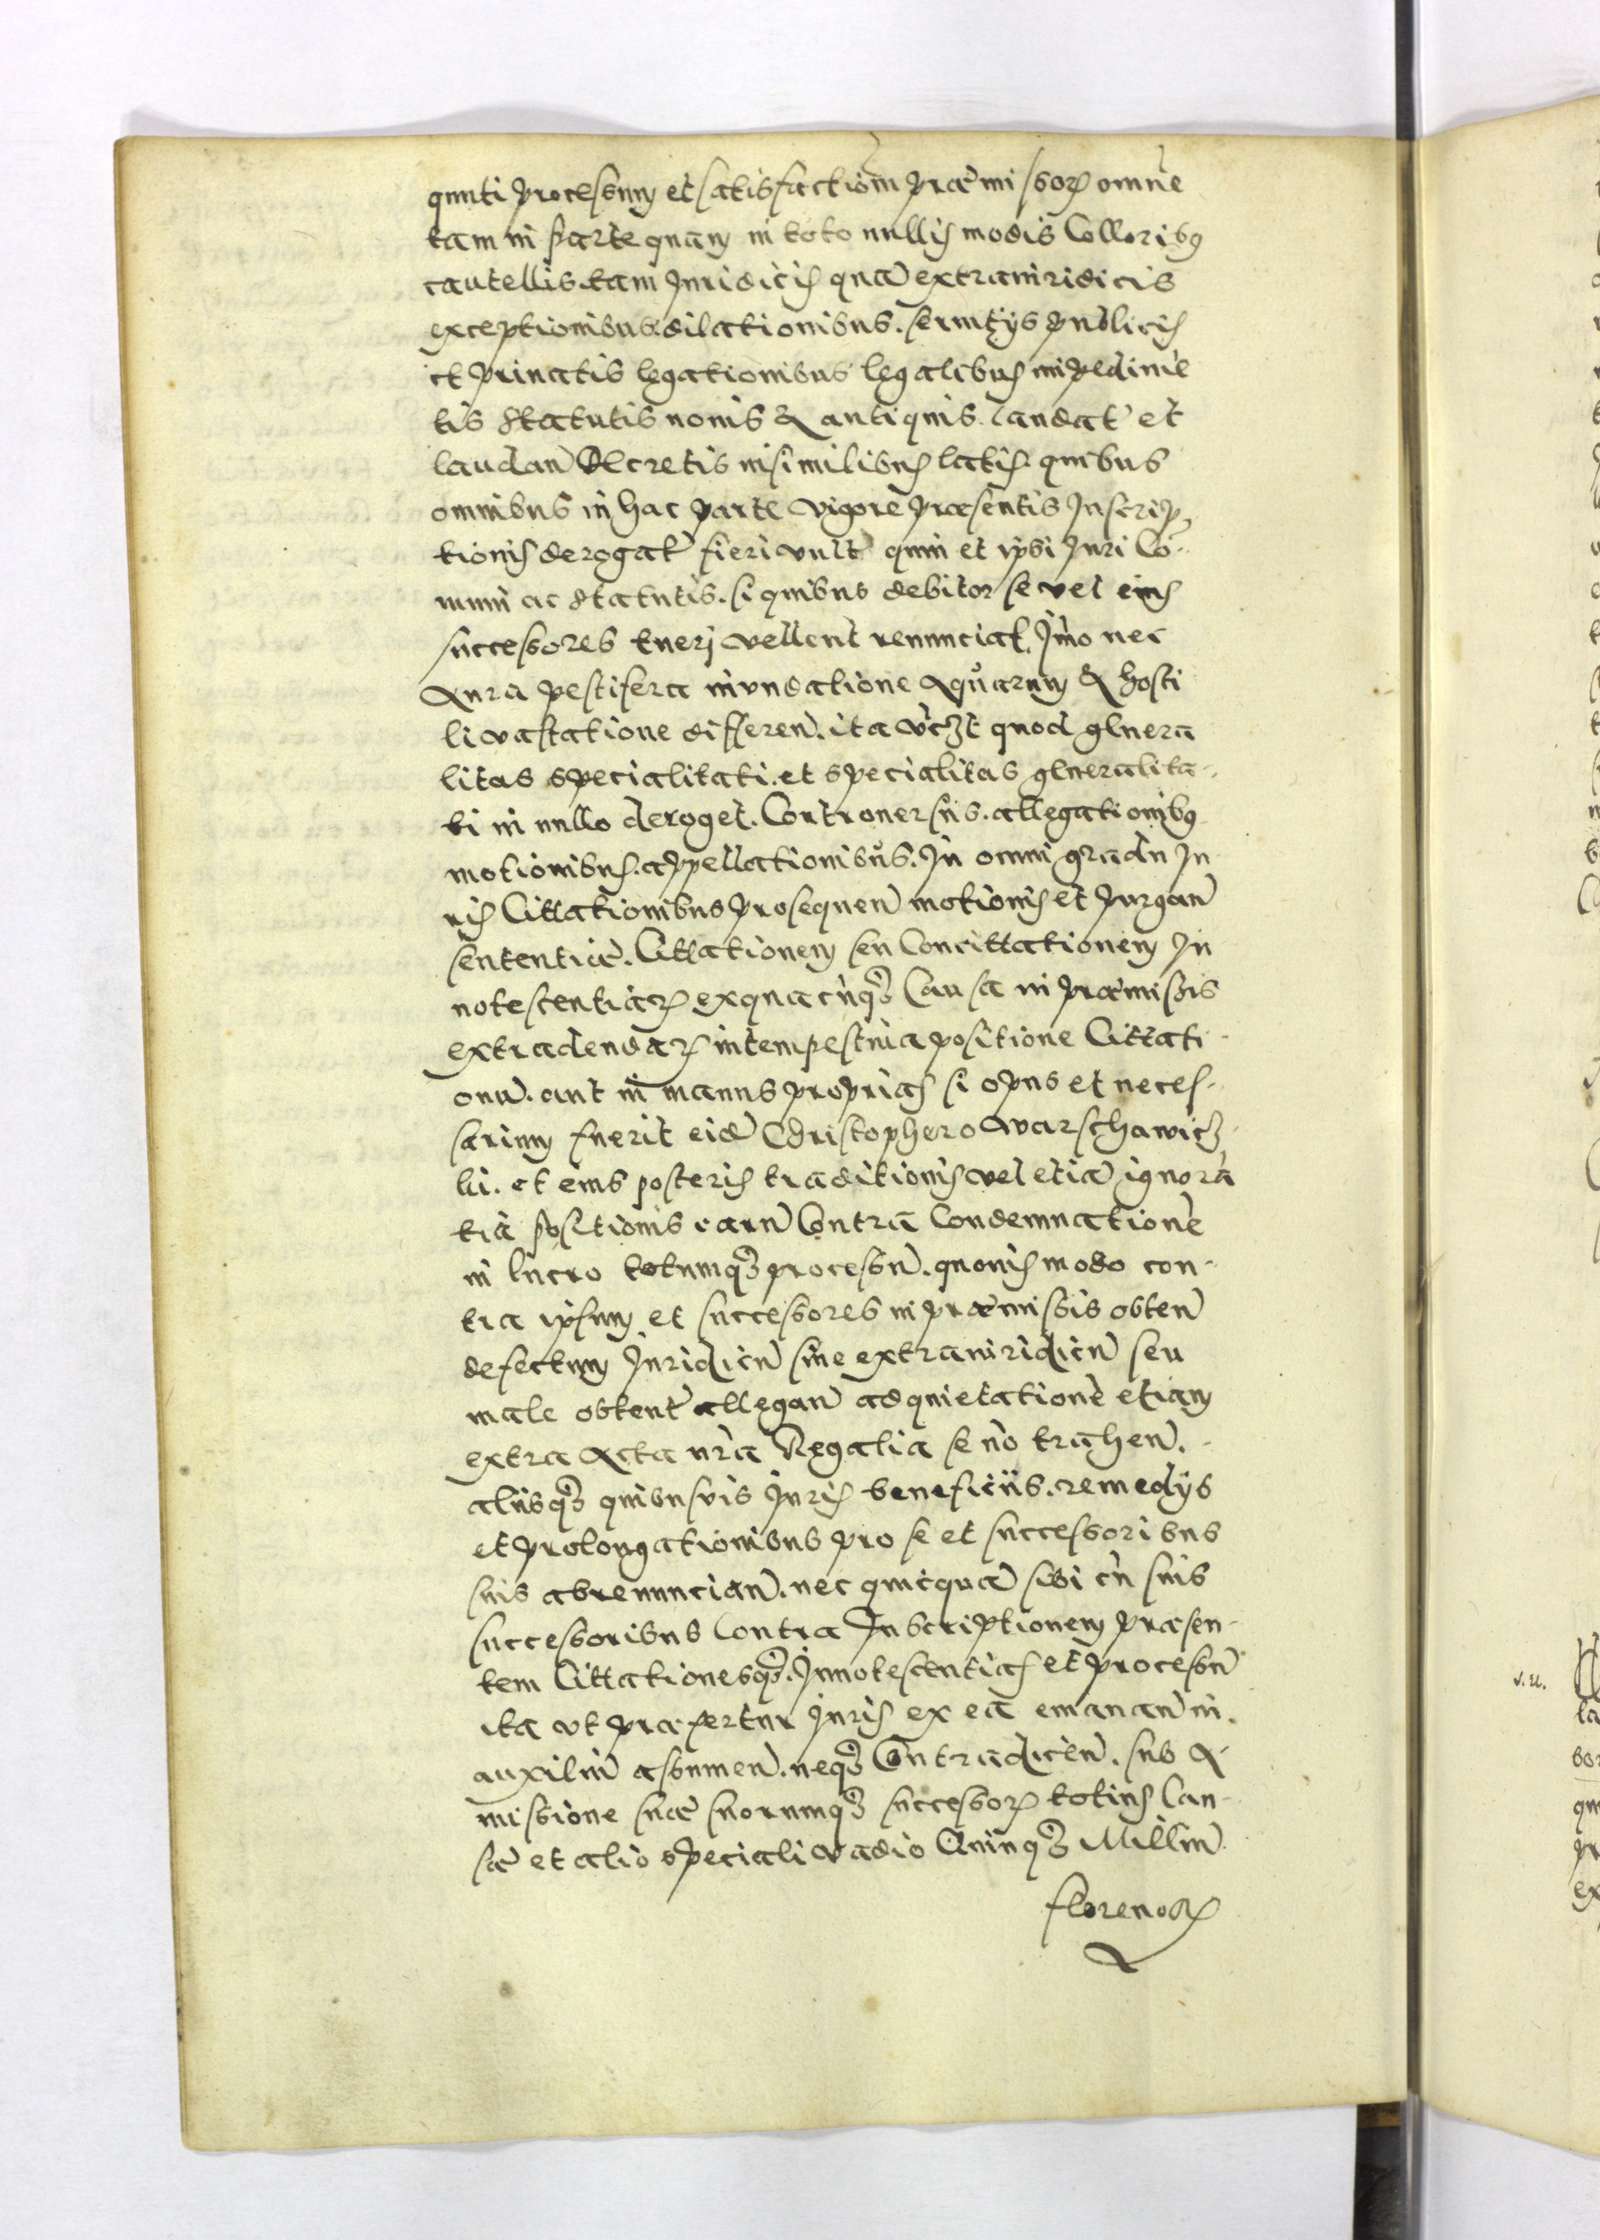 quuti processum et satisfactiõm præmissoꝝ omnẽ
tam in parte quam in toto nullis modis Colloribꝫ
cautellis. tam Juridicis quã extrauiridicis
exceptionibus. dilationibus. seruitÿs publicis
et priuatis legationibus legalibus impedimẽ
tis Statutis nouis & antiquis. laudat̃ et
laudan̄ Decretis insimilibus latis. quibus
omnibus in hac parte vigore præsentis Inscrip,
tionis derogat̃ fieri vult quin et ipsi Juri Cõ-
muni ac Statutis. si quibus debitor se vel eius
successores tueri vellent renunciat. Jm̃o nec
Aura pestifera inundatione Aquarum & hosti
li vastatione differen̄. ita vtꝫt quod genera
litas specialitati. et specialitas generalita-
ti in nullo deroget. Controuersiis. allegationibꝫ
motionibus. appellationibus. In omni gradu Ju
ris Cittationibus prosequen̄ motionis et purgan̄
sententiæ. Cittationem seu Concittationem In
notescentiaꝝ exquacũqꝫ Causa in præmissis
extradendaꝝ intempestiua positione Cittati-
onũ. aut in manus proprias si opus et neces-
sarium fuerit eidẽ Christophero Warschawicꝫ-
ki. et eius posteris traditionis vel etiã ignorã
tiã positionis earũ Contra Condemnationẽ
in lucro totumqꝫ processũ. quouis modo con-
tra ipsum et successores in præmissis obten̄
defectum Juridicũ siue extrauiridicũ seu
male obtent̃ allegan̄ ad quietationẽ etiam
extra Acta nr̃a Regalia se nõ trahen̄.
aliisqꝫ quibusvis Juris beneficiis. remedÿs
et prolongationibus pro se et successoribus
suis abrenuncian̄. nec quicquã sibi cũ suis
successoribus Contra Inscriptionem præsen-
tem Cittationesqꝫ. Innotescentias et processũ
ita vt præfertur Juris ex ea emanan̄ in.
auxiliũ assumen̄. neqꝫ Contradicen̄. sub A-
missione suæ suorumqꝫ successoꝝ totius Cau-
sæ et alio speciali vadio Quinqꝫ Milliũ
florenoꝝ